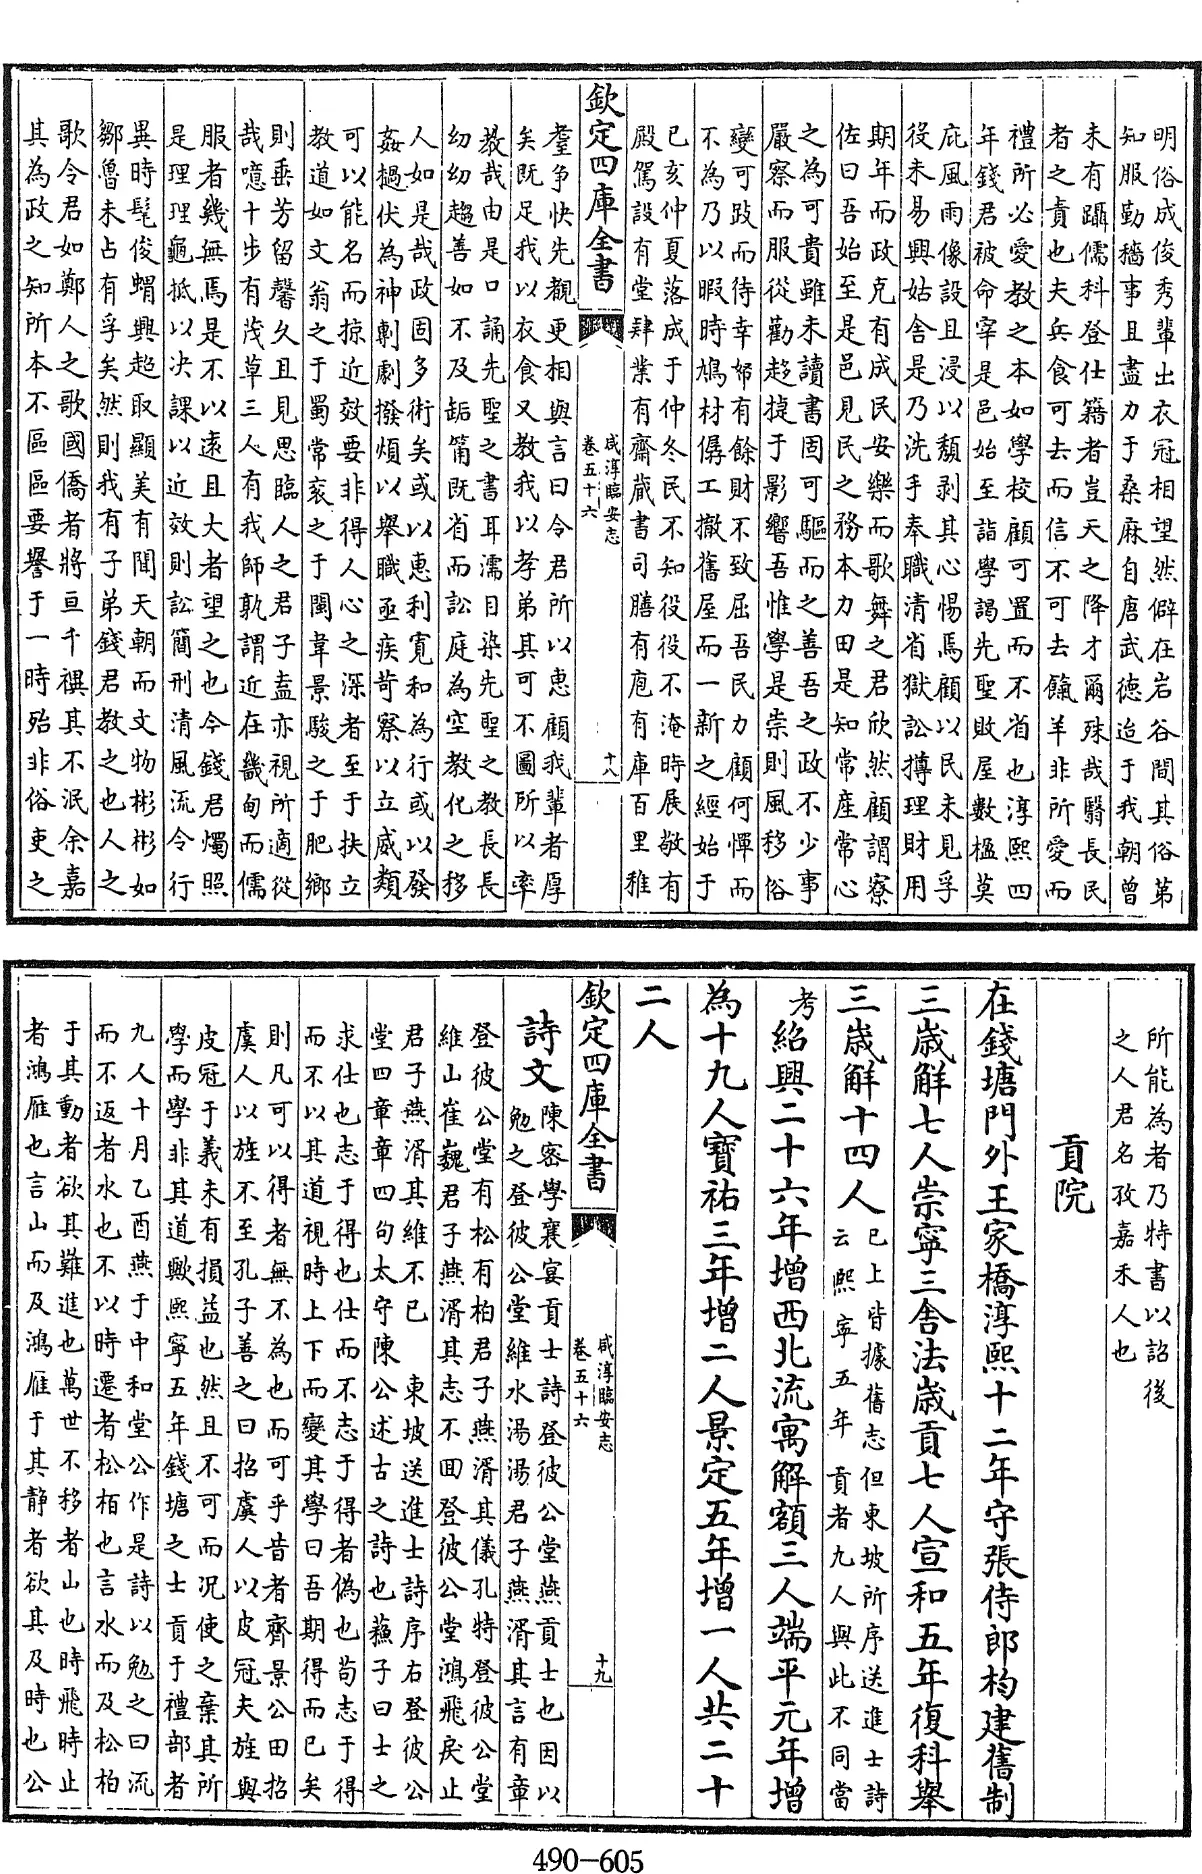 明俗成俊秀輩出衣冠相望然僻在岩谷間其俗第
知服勤穡事且盡力于桑麻自唐武德迨于我朝曾
未有躡儒科登仕籍者豈天之降才爾殊哉翳長民
者之責也夫兵食可去而信不可去餼羊非所愛而
禮所必愛教之本如學校顧可置而不省也淳熙四
年錢君被命宰是邑始至詣學謁先聖敗屋數楹莫
庇風雨像設且浸以頹剥其心惕焉顧以民未見孚
役未易興姑舍是乃洗手奉職清省獄訟摶理財用
期年而政克有成民安樂而歌舞之君欣然顧謂寮
佐曰吾始至是邑見民之務本力田是知常産常心
之為可貴雖未讀書固可驅而之善吾之政不少事
嚴察而服從勸趍捷于影響吾惟學是崇則風移俗
變可跂而待幸帑有餘財不致屈吾民力顧何憚而
不為乃以暇時鳩材僝工撤舊屋而一新之經始于
已亥仲夏落成于仲冬民不知役役不淹時展敬有
殿駕設有堂肄業有齋藏書司膳有庖有庫百里稚
欽定四庫全書
咸淳臨安志
卷五十六
十八
耋争快先覩更相與言曰令君所以惠顧我輩者厚
矣既足我以衣食又教我以孝弟其可不圖所以率
教哉由是口誦先聖之書耳濡目染先聖之教長長
幼幼趨善如不及缿筩既省而訟庭為空教化之移
人如是哉政固多術矣或以惠利寛和為行或以發
姦擿伏為神剸劇撥煩以舉職亟疾苛察以立威類
可以能名而掠近效要非得人心之深者至于扶立
教道如文翁之于蜀常衮之于閩韋景駿之于肥鄉
則垂芳留馨久且見思臨人之君子盍亦視所適從
哉噫十步有茂草三人有我師孰謂近在畿甸而儒
服者幾無焉是不以遠且大者望之也今錢君燭照
是理理龜抵以決課以近效則訟簡刑清風流令行
異時髦俊蝟興超取顯美有聞天朝而文物彬彬如
鄒魯未占有孚矣然則我有子弟錢君教之也人之
歌令君如鄭人之歌國僑者將亘千禩其不泯余嘉
其為政之知所本不區區要譽于一時殆非俗吏之
所能為者乃特書以詔後
之人君名孜嘉禾人也
貢院
在錢塘門外王家橋淳熙十二年守張侍郎杓建舊制
三歳解七人崇寧三舍法歳貢七人宣和五年復科舉
三歳解十四人
已上皆據舊志但東坡所序送進士詩
云熙寧五年貢者九人與此不同當
考
紹興二十六年增西北流寓解額三人端平元年增
為十九人寶祐三年增二人景定五年增一人共二十
二人
欽定四庫全書
咸淳臨安志
卷五十六
十九
詩文
陳密學襄宴貢士詩登彼公堂燕貢士也因以
勉之登彼公堂維水湯湯君子燕湑其言有章
登彼公堂有松有柏君子燕湑其儀孔特登彼公堂
維山崔巍君子燕湑其志不囘登彼公堂鴻飛戾止
君子燕湑其維不已 東坡送進士詩序右登彼公
堂四章章四句太守陳公述古之詩也蘓子曰士之
求仕也志于得也仕而不志于得者偽也苟志于得
而不以其道視時上下而變其學曰吾期得而已矣
則凡可以得者無不為也而可乎昔者齊景公田招
虞人以旌不至孔子善之曰招虞人以皮冠夫旌與
皮冠于義未有損益也然且不可而况使之棄其所
學而學非其道歟熙寧五年錢塘之士貢于禮部者
九人十月乙酉燕于中和堂公作是詩以勉之曰流
而不返者水也不以時遷者松栢也言水而及松柏
于其動者欲其難進也萬世不移者山也時飛時止
者鴻雁也言山而及鴻雁于其静者欲其及時也公
490-605